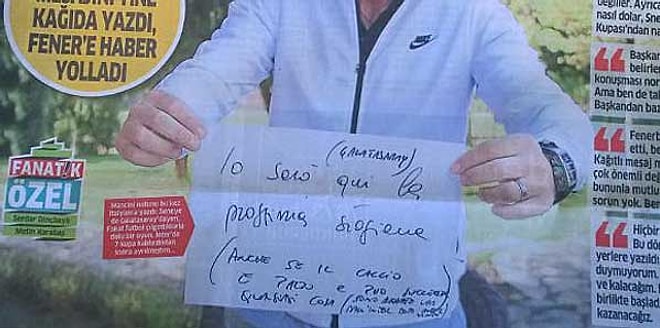 KAĞIDA YAZDI,
FENER'E HABER
YOLLADI
FANATİK
ÖZEL
Serdar Dinçbaylı
Metin Karabaş
Mancini notunu bu kez
İtalyanca yazdı: Seneye
de Galatasaray'dayım.
Fakat futbol çılgınlıklarla
dolu bir oyun. Inter'de
7 kupa kaldırdıktan
sonra ayrılmıştım...
(GALATASARAY)
Io sarò qui la
prossima stagione
(ANCHE SE IL CALCIO
E PAZZO E PUÒ
QUALSIASI COSA
değiller. Ayrıca
nasıl dolar, Sne
Kupası'ndan na
Başka
belirles
konuşması nor
Ama ben de ta
Başkandan baz
Fenerb
etti, be
Kağıtlı mesaj n
çok önemli değ
bununla mutlu
sorun yok. Ben
Hiçbir
Bu dö
yerlere yazıldı
duymuyorum.
ve kalacağım. B
birlikte başlad
kazanacağız.